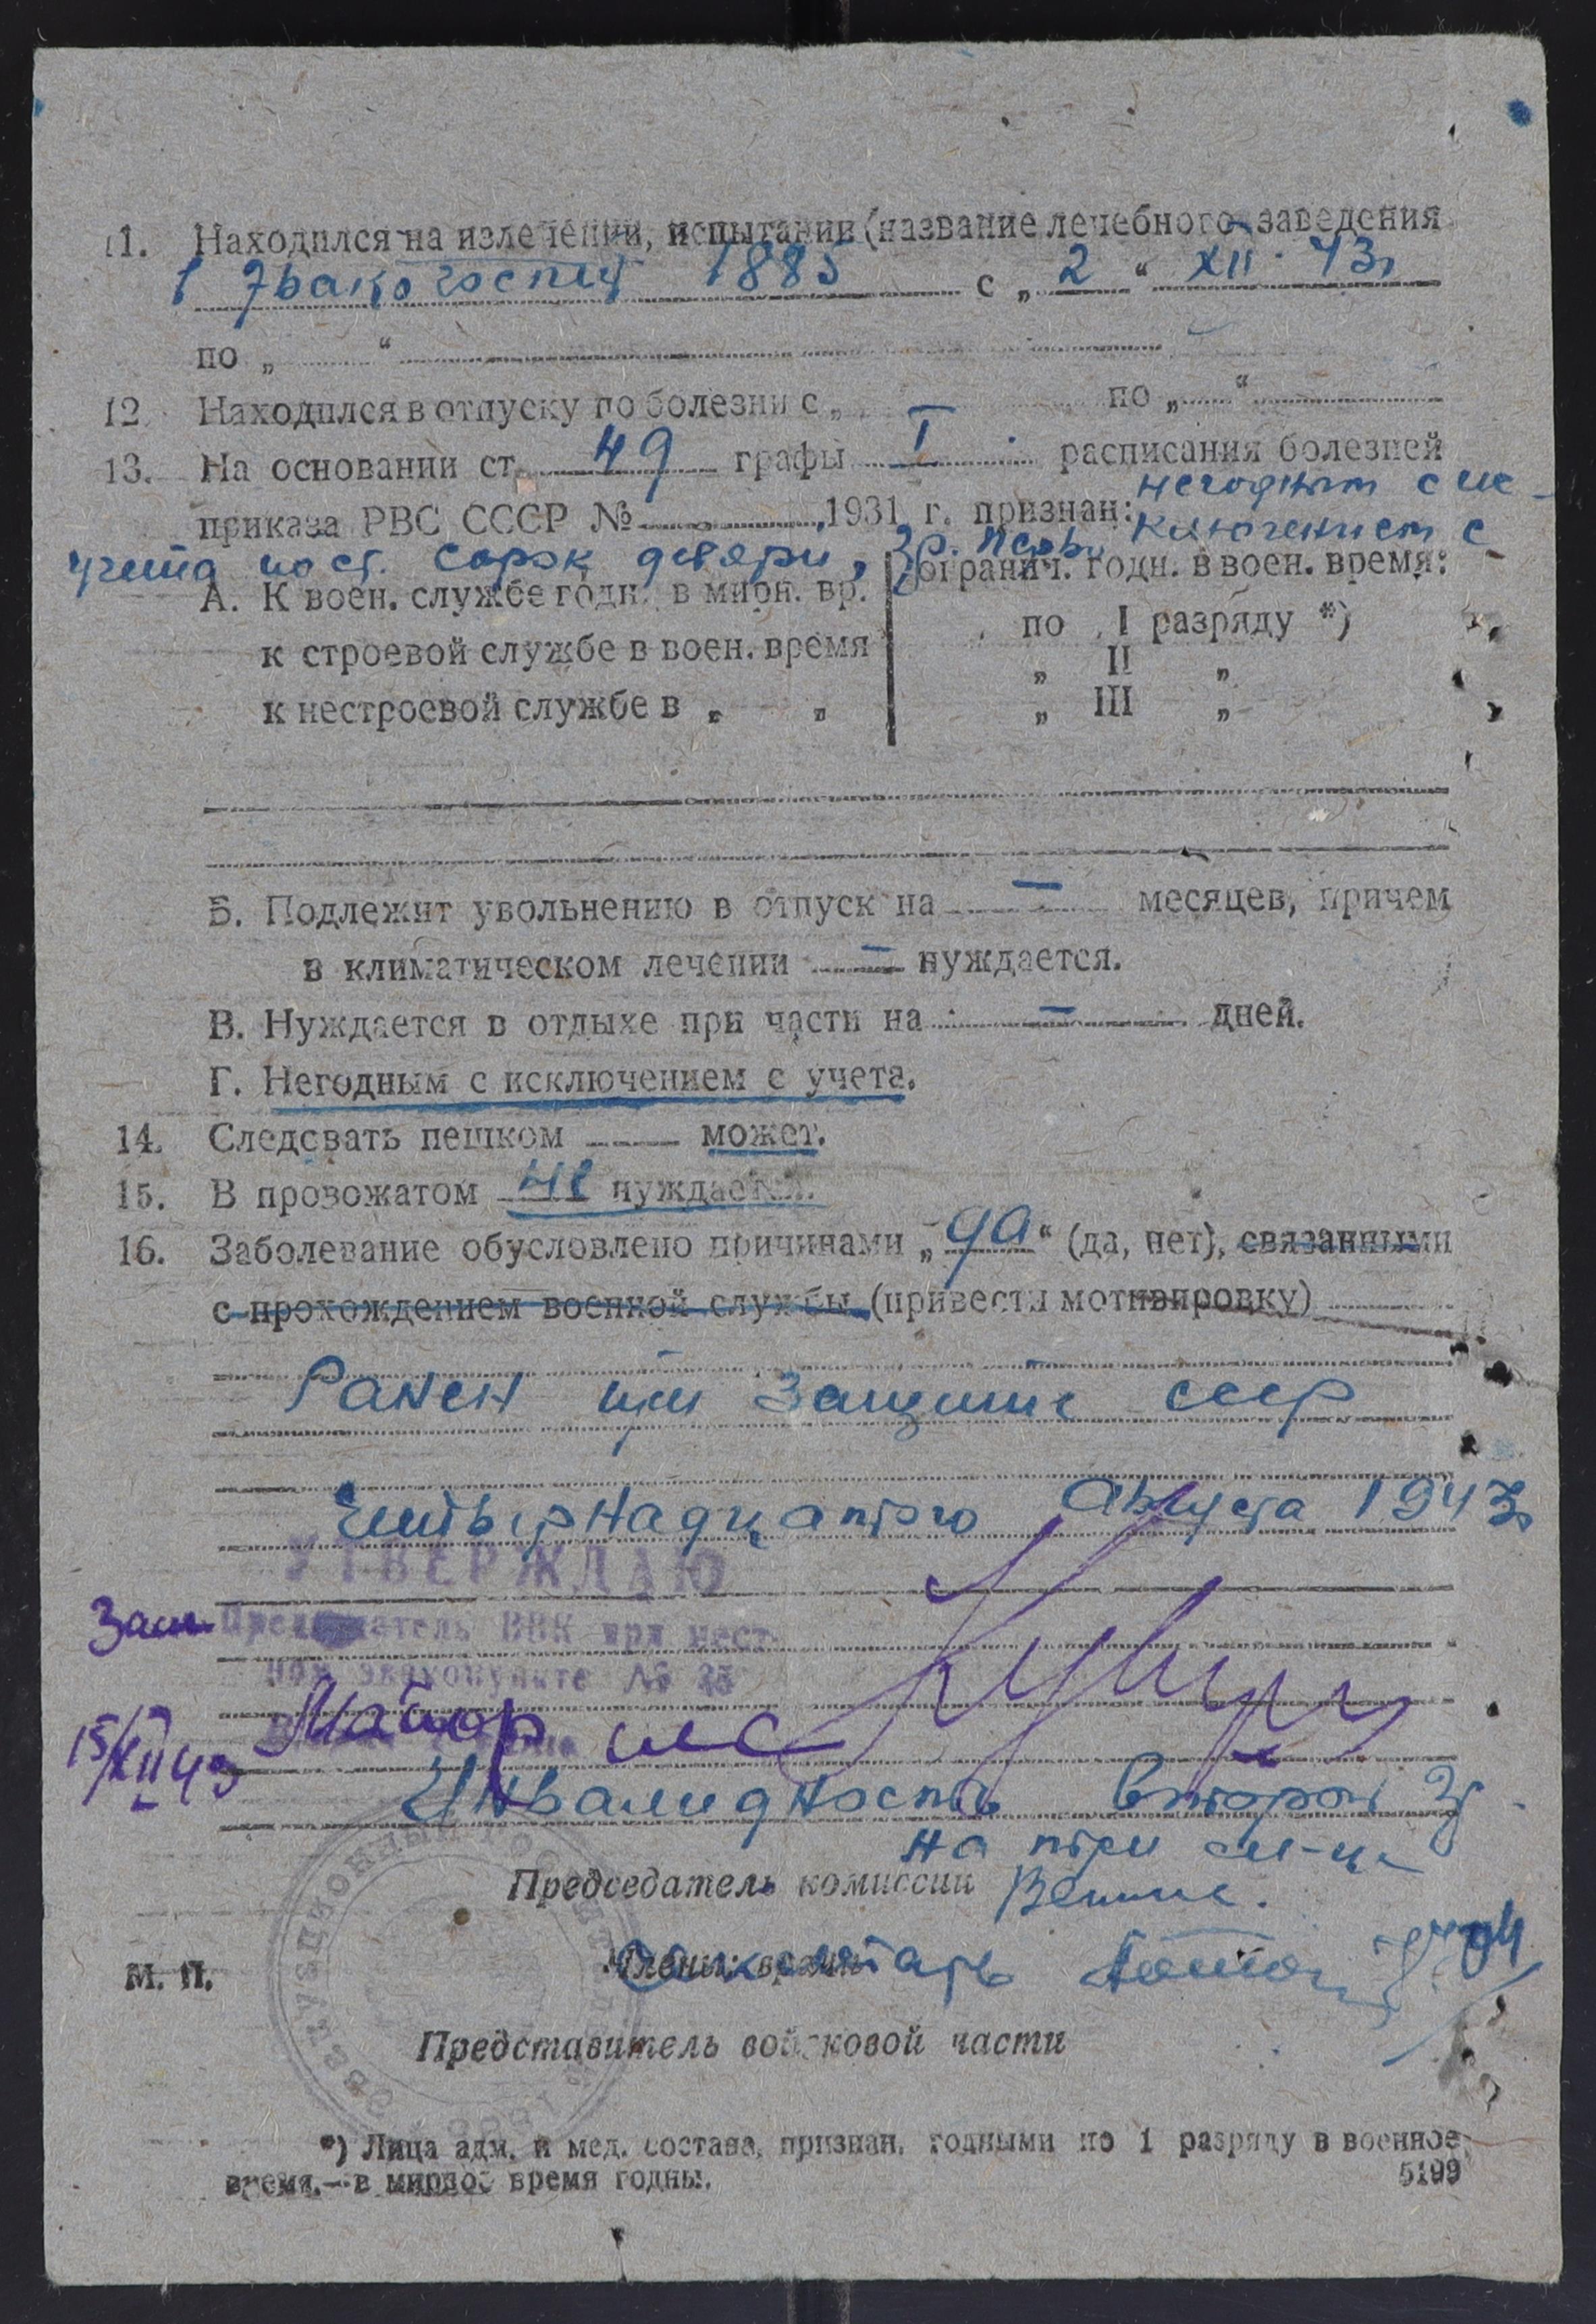 11. Находился на излечении, испытании (название лечебного заведения
Эвакогоспит 1885 с „ 2 “ XII. 43г
по „ “
12 Находился в отпуску по болезни с „ по „ “
13. На основании ст. 49 графы I расписания болезней
приказа РВС СССР № 1931 г. признан: негодным с ис-
ключением с
учета по ст. сорок девять, гр. перв.
А. К воен. службе годн. в мирн. вр. огранич. годн. в воен. время:
к строевой службе в воен. время по I разряду *)
„ II „
к нестроевой службе в „ „ „ III „
Б. Подлежит увольнению в отпуск на — месяцев, причем
в климатическом лечении — нуждается.
В. Нуждается в отдыхе при части на — дней.
Г. Негодным с исключением с учета.
14. Следовать пешком может.
15. В провожатом не нуждается.
16. Заболевание обусловлено причинами „ да “ (да, нет), связанными
с прохождением военной службы (привести мотивировку)
Ранен при защите ссср
Читырнадцатого Августа 1943г
УТВЕРЖДАЮ
Зам. Председатель ВВК при мест-
ном эвакопункте №
Майор мс
15/XII 43
Инвалидность второй гр.
на три м-ца
Председатель комиссии
Члены: врачи
М. П.
Представитель войсковой части
*) Лица адм. и мед. состава, признан. годными по 1 разряду в военное
время,—в мирное время годны.
5199